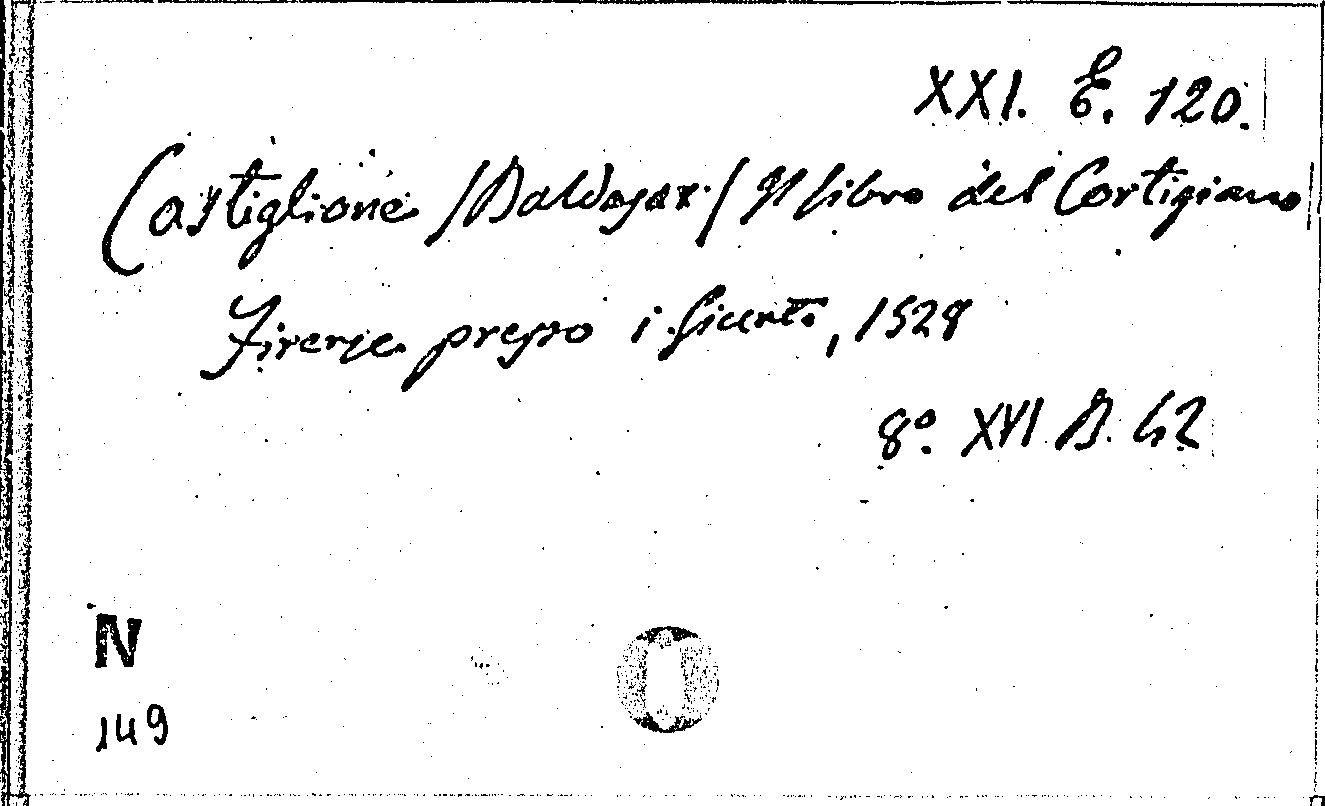 XXI. E. 120.
Castiglione /Baldasar./ Il libro del Cortigiano
Firenze presso i Giunti, 1528
8º. XVI B. 42
N
149